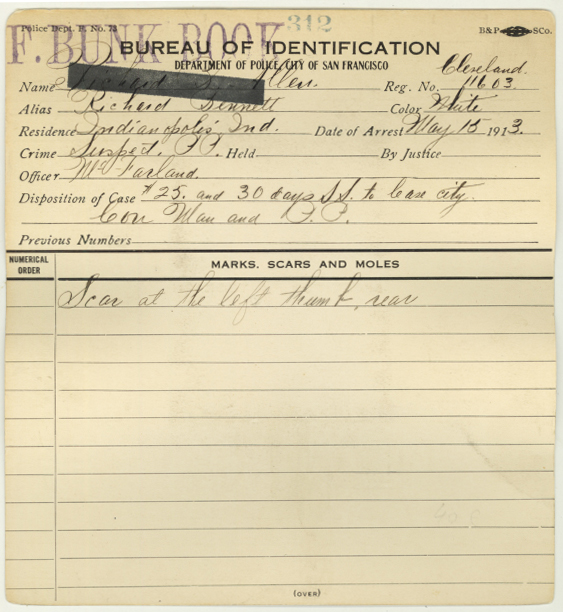 Police Dept. F. No. 73
312
B&P SCo.
F. BUNK BOOK
BUREAU OF IDENTIFICATION
DEPARTMENT OF POLICE, CITY OF SAN FRANCISCO
Cleveland.
Name Allen. Reg. No. 11603.
Alias Richard Bennett Color White
Residence Indianapolis, Ind. Date of Arrest May 15 1913.
Crime Suspect. P.P. Held By Justice
Officer McFarland.
Disposition of Case $25. and 30 days S.S. to leave city.
Con Man and P.P.
Previous Numbers
NUMERICAL ORDER MARKS, SCARS AND MOLES
Scar at the left thumb, rear
(OVER)